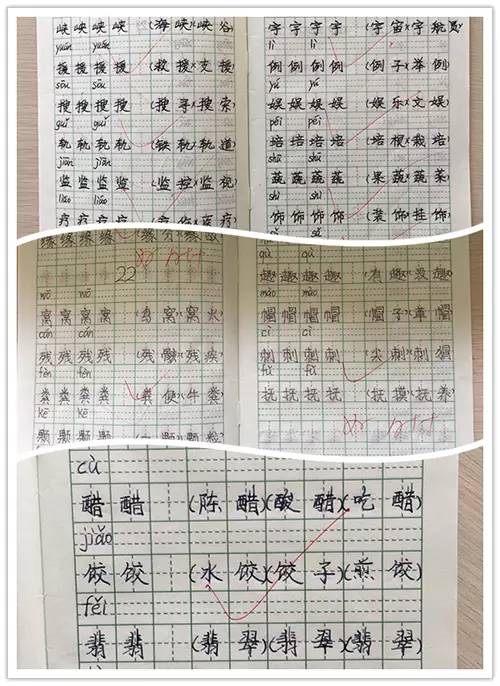 峡 峡 峡 峡 (海 峡)(峡 谷)
yuán yuán
援 援 援 援 (救 援)(支 援)
sōu sōu
搜 搜 搜 搜 (搜 寻)(搜 索)
guǐ guǐ
轨 轨 轨 轨 (铁 轨)(轨 道)
jiān jiān
监 监 监 监 (监 控)(监 视)
liáo liáo
疗 疗 疗 疗
宇 宇 宇 宇 (宇 宙)(宇 航 员)
lì lì
例 例 例 例 (例 子)(举 例)
yú yú
娱 娱 娱 娱 (娱 乐)(文 娱)
péi péi
培 培 培 培 (培 根)(栽 培)
shū shū
蔬 蔬 蔬 蔬 (果 蔬)(蔬 菜)
shì shì
饰 饰 饰 饰 (装 饰)(挂 饰)
缘 缘 缘 缘
22
wō wō
窝 窝 窝 窝
cán cán
残 残 残 残 (残 酷)(残 疾)
fèn fèn
粪 粪 粪 粪 (粪 便)(牛 粪)
kē kē
颗 颗 颗 颗
qù qù
趣 趣 趣 趣 (有 趣)(没 趣)
mào mào
帽 帽 帽 帽 (帽 子)(草 帽)
cì cì
刺 刺 刺 刺 (尖 刺)(刺 猬)
fǔ fǔ
抚 抚 抚 抚 (抚 摸)(抚 养)
cù
醋 醋 (陈 醋)(酸 醋)(吃 醋)
jiǎo
饺 饺 (水 饺)(饺 子)(煎 饺)
fěi
翡 翡 (翡 翠)(翡 翠)(翡 翠)